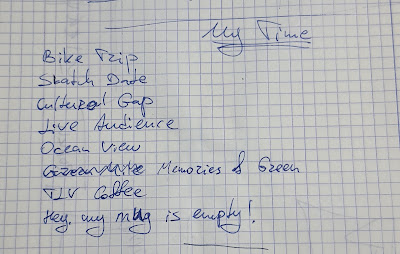 My Time
Bike Trip
Skatch Date
Cultural Gap
Live Audience
Ocean View
Memories of Green
TLV Coffee
Hey, my mug is empty!